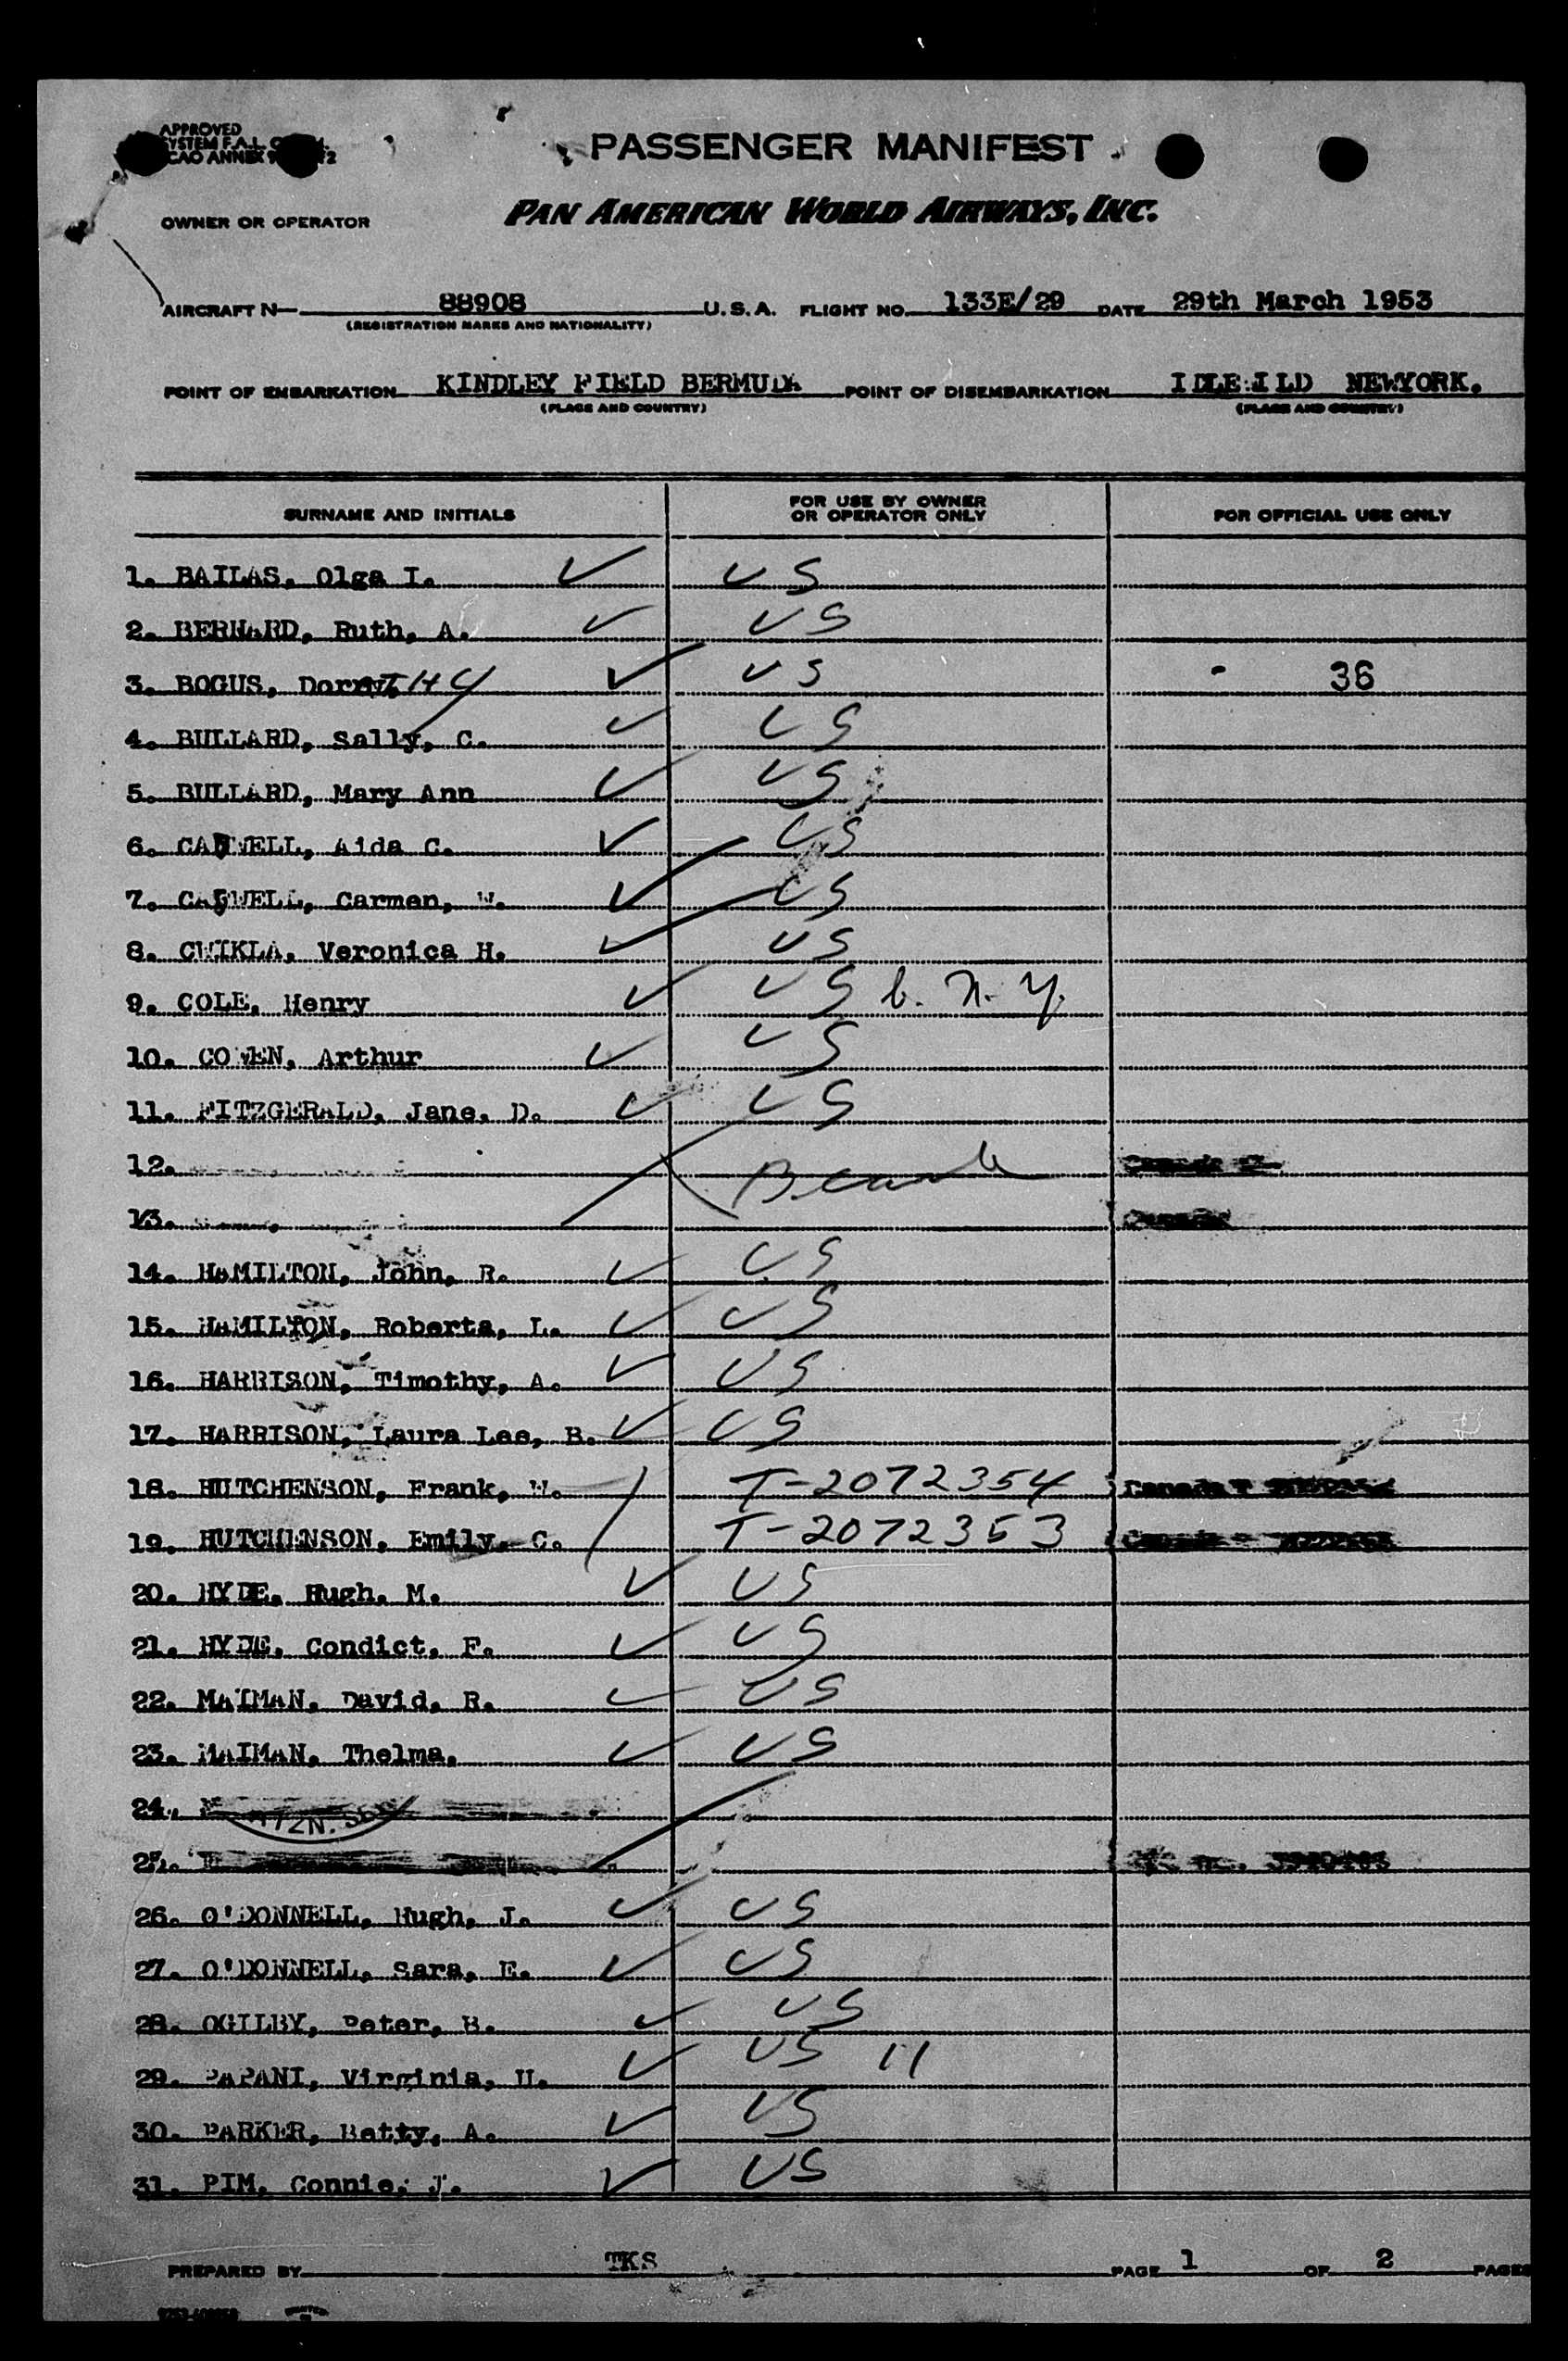 APPROVED
PASSENGER MANIFEST
OWNER OR OPERATOR PAN AMERICAN WORLD AIRWAYS, INC.
AIRCRAFT N— 88908 U.S.A. FLIGHT NO. 133E/29 DATE 29th March 1953
(REGISTRATION MARKS AND NATIONALITY)
POINT OF EMBARKATION KINDLEY FIELD BERMUDA POINT OF DISEMBARKATION IDLEWILD NEWYORK.
(PLACE AND COUNTRY) (PLACE AND COUNTRY)
SURNAME AND INITIALS FOR USE BY OWNER OR OPERATOR ONLY FOR OFFICIAL USE ONLY
1. BAILAS, Olga I. ✓ US
2. BERNARD, Ruth, A. ✓ US
3. BOGUS, Dorothy ✓ US - 36
4. BULLARD, Sally, C. ✓ US
5. BULLARD, Mary Ann ✓ US
6. CADWELL, Aida C. ✓ US
7. CADWELL, Carmen, W. ✓ US
8. CWIKLA, Veronica H. ✓ US
9. COLE, Henry ✓ US b. N.Y.
10. COWEN, Arthur ✓ US
11. FITZGERALD, Jane, D. ✓ US
12.
13.
14. HAMILTON, John, R. ✓ US
15. HAMILTON, Roberta, L. ✓ US
16. HARRISON, Timothy, A. ✓ US
17. HARRISON, Laura Lee, B. ✓ US
18. HUTCHENSON, Frank, W. T-2072354 Canada
19. HUTCHENSON, Emily, C. T-2072353
20. HYDE, Hugh, M. ✓ US
21. HYDE, Condict, F. ✓ US
22. MAIMAN, David, R. ✓ US
23. MAIMAN, Thelma. ✓ US
24.
25.
26. O'DONNELL, Hugh, J. ✓ US
27. O'DONNELL, Sara, E. ✓ US
28. OGILBY, Peter, B. ✓ US
29. PAPANI, Virginia, U. ✓ US 11
30. PARKER, Betty, A. ✓ US
31. PIM, Connie, J. ✓ US
PREPARED BY TKS PAGE 1 OF 2 PAGES